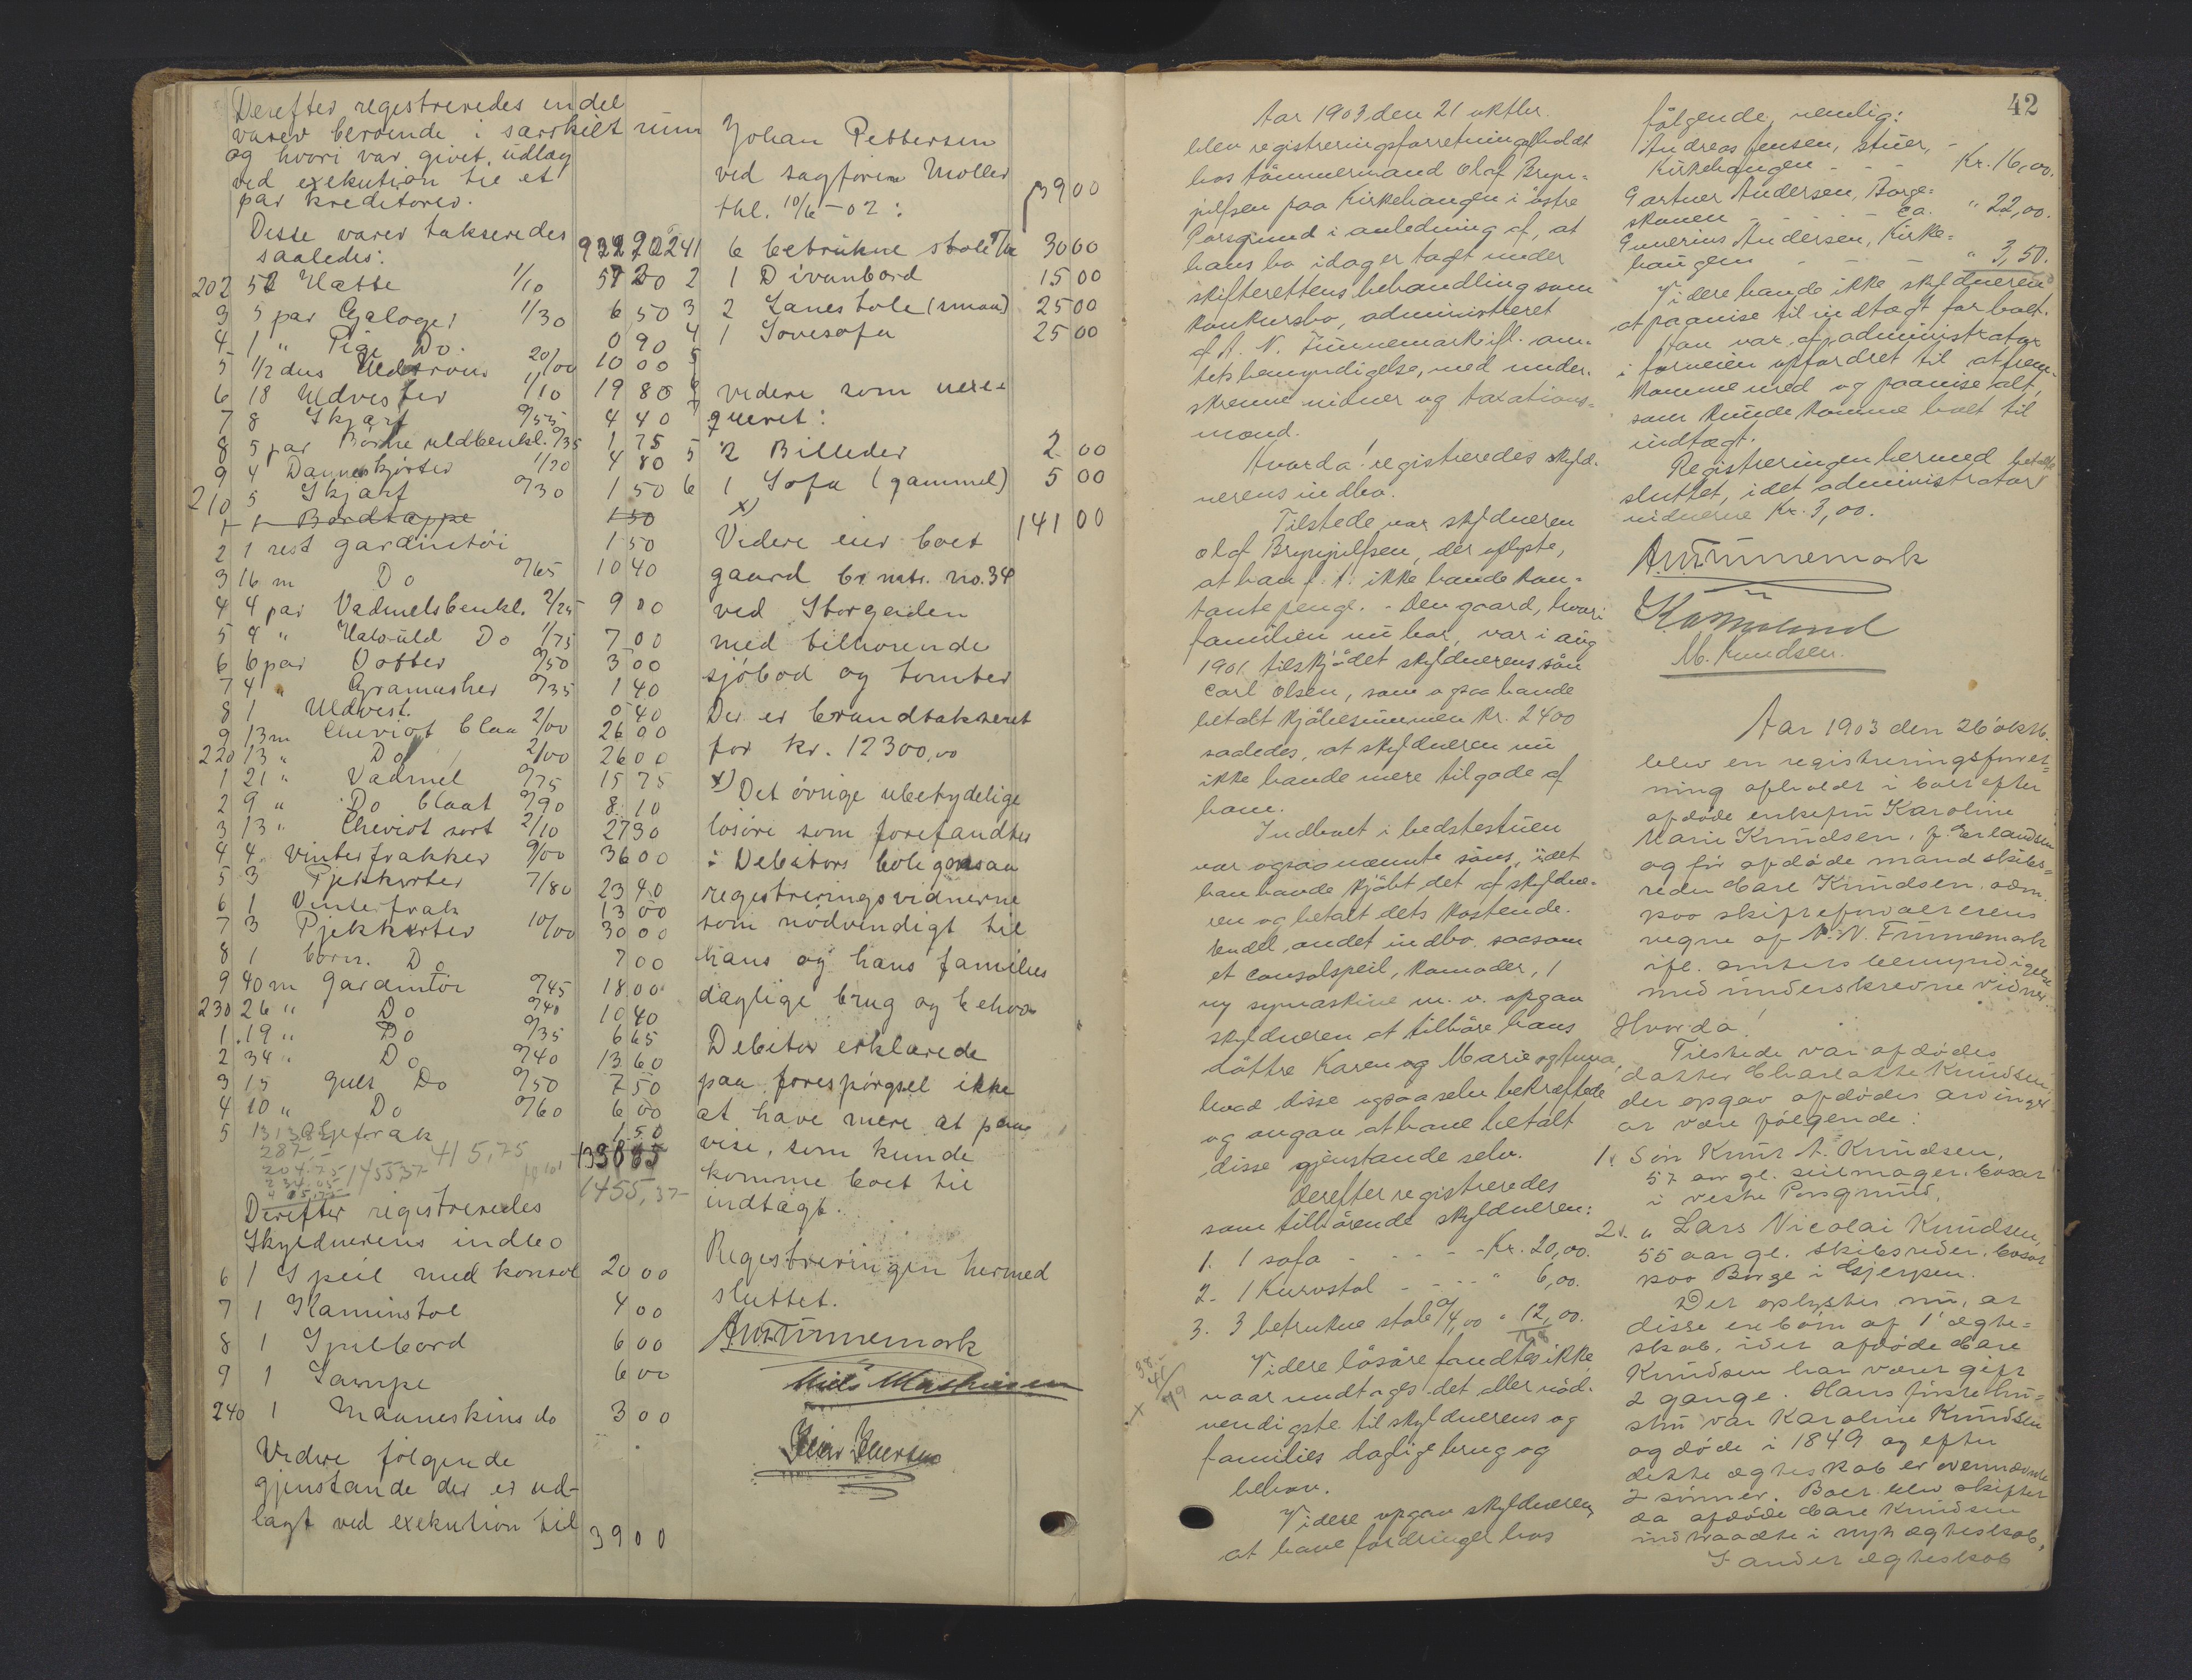 Derefter registreredes endel
varer beroende i særskilt rum
og hvori var givet udlæg
ved exekution til et
par kreditorer.
Disse varer takseredes
saaledes:
202 52 Hatte 1/10 57 20
3 5 par Galoger 1/30 6 50
4 1 " Pige Do. 0 90
5 1/2 dus 20/00 10 00
6 18 Uldvester 1/10 19 80
7 8 Skjærf 0/55 4 40
8 5 par Börne uldbenkl. 0/35 1 75
9 4 Dameskjörter 1/20 4 80
210 5 Skjærf 0/30 1 50
1 1 Bordtæppe 1 50
2 1 rest gardintöi 1 50
3 16 m Do 0/65 10 40
4 4 par Vadmelsbenkl. 2/25 9 00
5 4 " Halvuld Do 1/75 7 00
6 6 par Votter 0/50 3 00
7 4 " Gramascher 0/35 1 40
8 1 Uldvest. 0 40
9 13 m Cheviot blaa 2/00 26 00
220 13 " Do 2/00 26 00
1 21 " Vadmel 0/75 15 75
2 9 " Do blaat 0/90 8 10
3 13 " Cheviot sort 2/10 27 30
4 4 Vinterfrakker 9/00 36 00
5 3 Pjekkerter 7/80 23 40
6 1 Vinterfrak 13 00
7 3 Pjekkerter 10/00 30 00
8 1 barn. Do 7 00
9 40 m Gardintöi 0/45 18 00
230 26 " Do 0/40 10 40
1 19 " Do 0/35 6 65
2 34 " Do 0/40 13 60
3 15 gult Do 0/50 7 50
4 10 " Do 0/60 6 00
5 1 50
287,-
415,75
1455,37
1455,37
Derefter registreredes
Skyldnerens indbo
6 1 Speil med konsol 20 00
7 1 Kaminstol 4 00
8 1 Spilbord 6 00
9 1 Lampe 6 00
240 1 Maaneskins do 3 00
Videre følgende
gjenstande der er ud-
lagt ved exekution til
39 00
Johan Pettersen
ved sagförer Möller
thl. 10/6-02: 39 00
241 6 betrukne stole 30 00
2 1 Divanbord 15 00
3 2 Lænestole (smaa) 25 00
4 1 Sovesofa 25 00
5
videre som uere-
gueret:
5 2 Billeder 2 00
6 1 Sofa (gammel) 5 00
x) 141 00
Videre eier boet
gaard br. mtr. no. 34
ved Storgaden
med tilhörende
sjöbod og tomter
Der er brandtakseret
for kr. 12300,00
x) Det övrige ubetydelige
lösöre som forefandtes
i Debitors bolig ansaa
registreringsvidnerne
som nödvendigt til
hans og hans families
daglige brug og behov
Debitor erklærede
paa forespörgsel ikke
at have mere at paa
vise, som kunde
komme boet til
indtægt.
Registreringen hermed
sluttet.
A. N. Tinnemark
Niels Mathisen
Aar 1903 den 21 oktbr.
blev registreringsforretning afholdt
hos tömmermand Olaf Bryn-
julfsen paa Kirkehaugen i östre
Porsgrund i anledning af, at
hans bo idag er tagt under
skifterettens behandling som
konkursbo, administreret
af A. N. Tinnemark ifl. am-
tets bemyndigelse, med under-
skrevne vidner og taxations-
mænd.
Hvorda! registreredes skyld-
nerens indbo.
Tilstede var skyldneren
Olaf Brynjulfsen, der oplyste,
at han f. t. ikke havde kon-
tante penge. - Den gaard, hvori
familien nu bor, var i aug
1901 tilskjödet skyldnerens sön
Carl Olsen, som ogsaa havde
betalt kjöbesummen kr. 2400
saaledes, at skyldneren nu
ikke havde mere tilgode af
ham.
Indboet i bedstestuen
var ogsaa nævnte söns, idet
han havde kjöbt det af skyldne-
ren og betalt dets kostende.
Endel andet indbo saasom
et consolspeil, Komoder, 1
ny symaskine m. v. opgav
skyldneren at tilhöre hans
döttre Karen og Marie og Anna,
hvad disse ogsaa selv bekræftede
og angav at have betalt
disse gjenstande selv.
Derefter registreredes
som tilhörende skyldneren:
1. 1 sofa - - - - Kr. 20,00.
2. 1 Kurvstol - - - " 6,00.
3. 3 betrukne stole a/4,00 " 12,00.
Videre lösöre fandtes ikke
naar undtages det aller nöd-
vendigste til skyldnerens og
families daglige brug og
behov.
Videre opgav skyldneren
at have fordringer hos
42
følgende, nemlig:
Andreas Jensen, stuer, -
Kirkehaugen - - Kr. 16,00.
Gartner Andersen, Borge-
skauen - - - - ca. " 22,00.
Gunerius Andersen, Kirke-
haugen - - - " 3,50.
Videre havde ikke skyldneren
at paavise til indtægt for boet.
Han var af administrator
i forveien opfordret til at frem-
komme med og paavise alt,
som kunde komme boet til
indtægt.
Registreringen hermed
sluttet, idet administrator betalte
vidnerne Kr. 3,00.
A. N. Tinnemark
M. Knudsen.
Aar 1903 den 26 oktb.
blev en registreringsforret-
ning afholdt i boet efter
afdöde enkefru Karoline
Marie Knudsen, f. Erlandsen
og för afdöde mand skibs-
reder Carl Knudsen. adm.
paa skifteforvalterens
vegne af A. N. Tinnemark
ifl. amtets bemyndigelse
med underskrevne vidner.
Hvorda!
Tilstede var afdödes
datter Charlotte Knudsen,
der opgav afdödes arvinger
at være følgende:
1. Sön Knut A. Knudsen,
57 aar gl. seilmager, bosat
i vestre Porsgrund.
2. " Lars Nicolai Knudsen,
55 aar gl. skibsreder, bosat
paa Borge i Gjerpen.
Det oplystes nu, at
disse er börn af 1' ægte-
skab, idet afdöde Carl
Knudsen har været gift
2 gange. Hans første hu-
stru var Karoline Knudsen
og döde i 1849 og efter
dette ægteskab er ovennævnte
2 sönner. Boet blev skiftet
da afdöde Carl Knudsen
indtraadte i nyt ægteskab.
I andet ægteskab